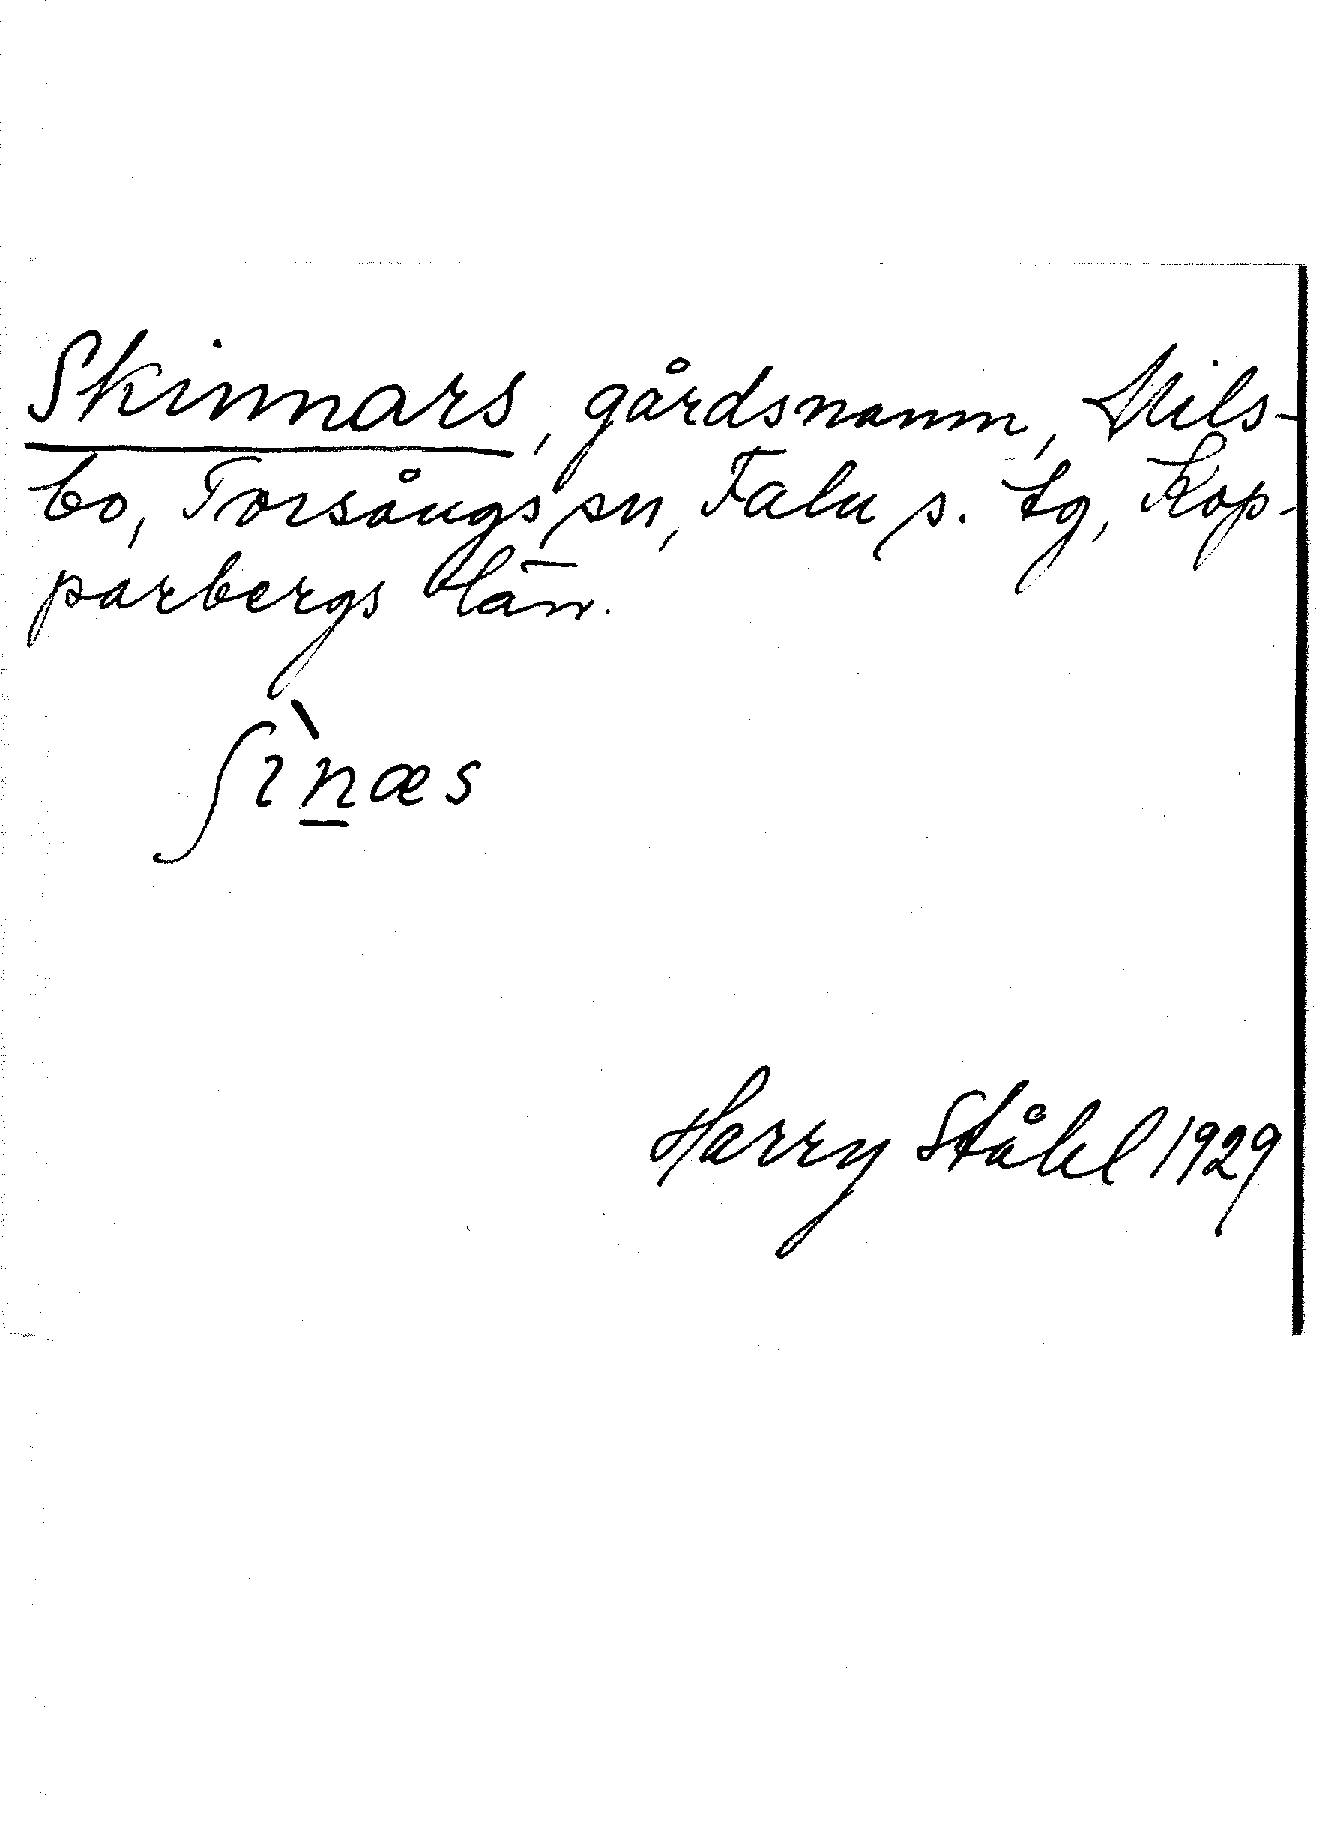 Skinnars, gårdsnamn, Mils-
bo, Torsångs sn, Falu s. tg, Kop-
parbergs län.
ʃìn̲æs
Harry Ståhl 1929